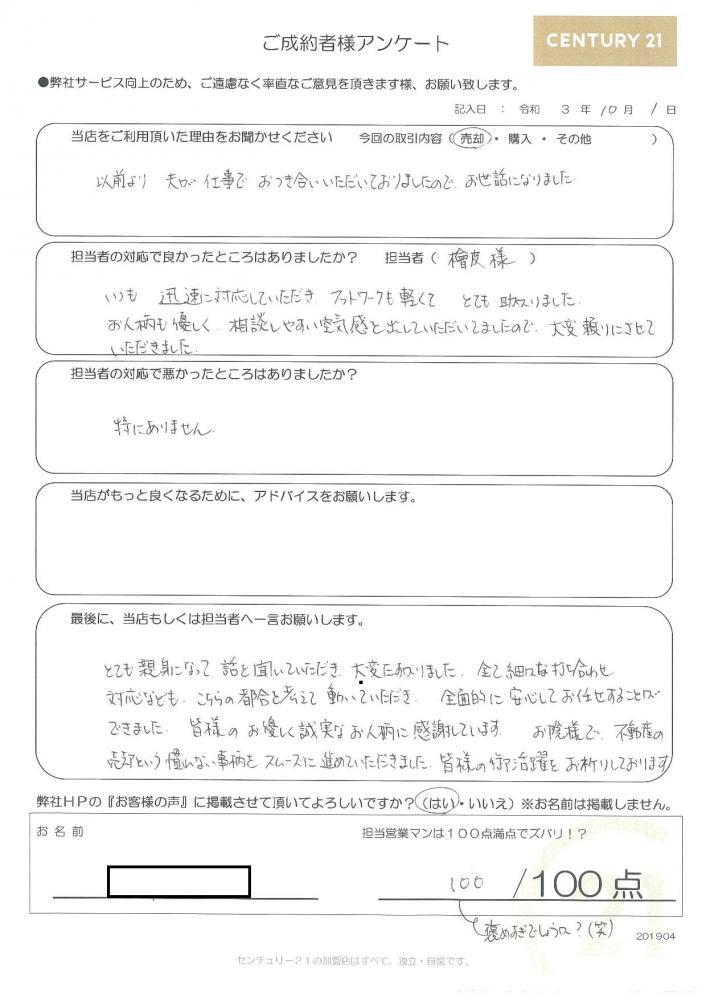 ご成約者様アンケート
CENTURY 21
●弊社サービス向上のため、ご遠慮なく率直なご意見を頂きます様、お願い致します。
記入日 : 令和 3 年 10 月 1 日
当店をご利用頂いた理由をお聞かせください 今回の取引内容(売却・購入・その他 )
以前より 夫が 仕事で おつき合いいただいておりましたので、お世話になりました
担当者の対応で良かったところはありましたか? 担当者( 檜皮様 )
いつも 迅速に対応していただき、フットワークも軽くて とても 助かりました。
お人柄も優しく、相談しやすい空気感を出していただいてましたので、大変 頼りにさせて
いただきました。
担当者の対応で悪かったところはありましたか?
特にありません。
当店がもっと良くなるために、アドバイスをお願いします。
最後に、当店もしくは担当者へ一言お願いします。
とても 親身になって 話を聞いていただき、大変助かりました。全て細かな打ち合わせ
対応なども、こちらの都合を考えて 動いていただき、全面的に 安心して お任せすることが
できました。皆様の お優しく誠実なお人柄に感謝しています。 お陰様で、不動産の
売却という 慣れない事柄を スムーズに 進めていただきました。皆様の御活躍を お祈りしております
弊社HPの『お客様の声』に掲載させて頂いてよろしいですか?(はい・いいえ)※お名前は掲載しません。
お名前 担当営業マンは100点満点でズバリ!?
100 /100点
褒めすぎでしょうか?(笑)
201904
センチュリー21の加盟店はすべて、独立・自営です。